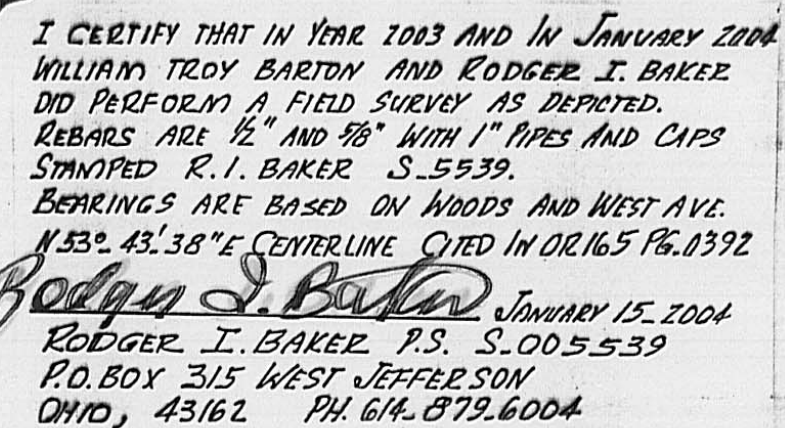 I CERTIFY THAT IN YEAR 2003 AND IN JANUARY 2004
WILLIAM TROY BARTON AND RODGER I. BAKER
DID PERFORM A FIELD SURVEY AS DEPICTED.
REBARS ARE 1/2" AND 5/8" WITH 1" PIPES AND CAPS
STAMPED R.I. BAKER S-5539.
BEARINGS ARE BASED ON WOODS AND WEST AVE.
N 53°-43'-38"E CENTERLINE CITED IN OR 165 PG.0392
Rodger I. Baker JANUARY 15-2004
RODGER I. BAKER P.S. S-005539
P.O. BOX 315 WEST JEFFERSON
OHIO, 43162 PH. 614-879-6004